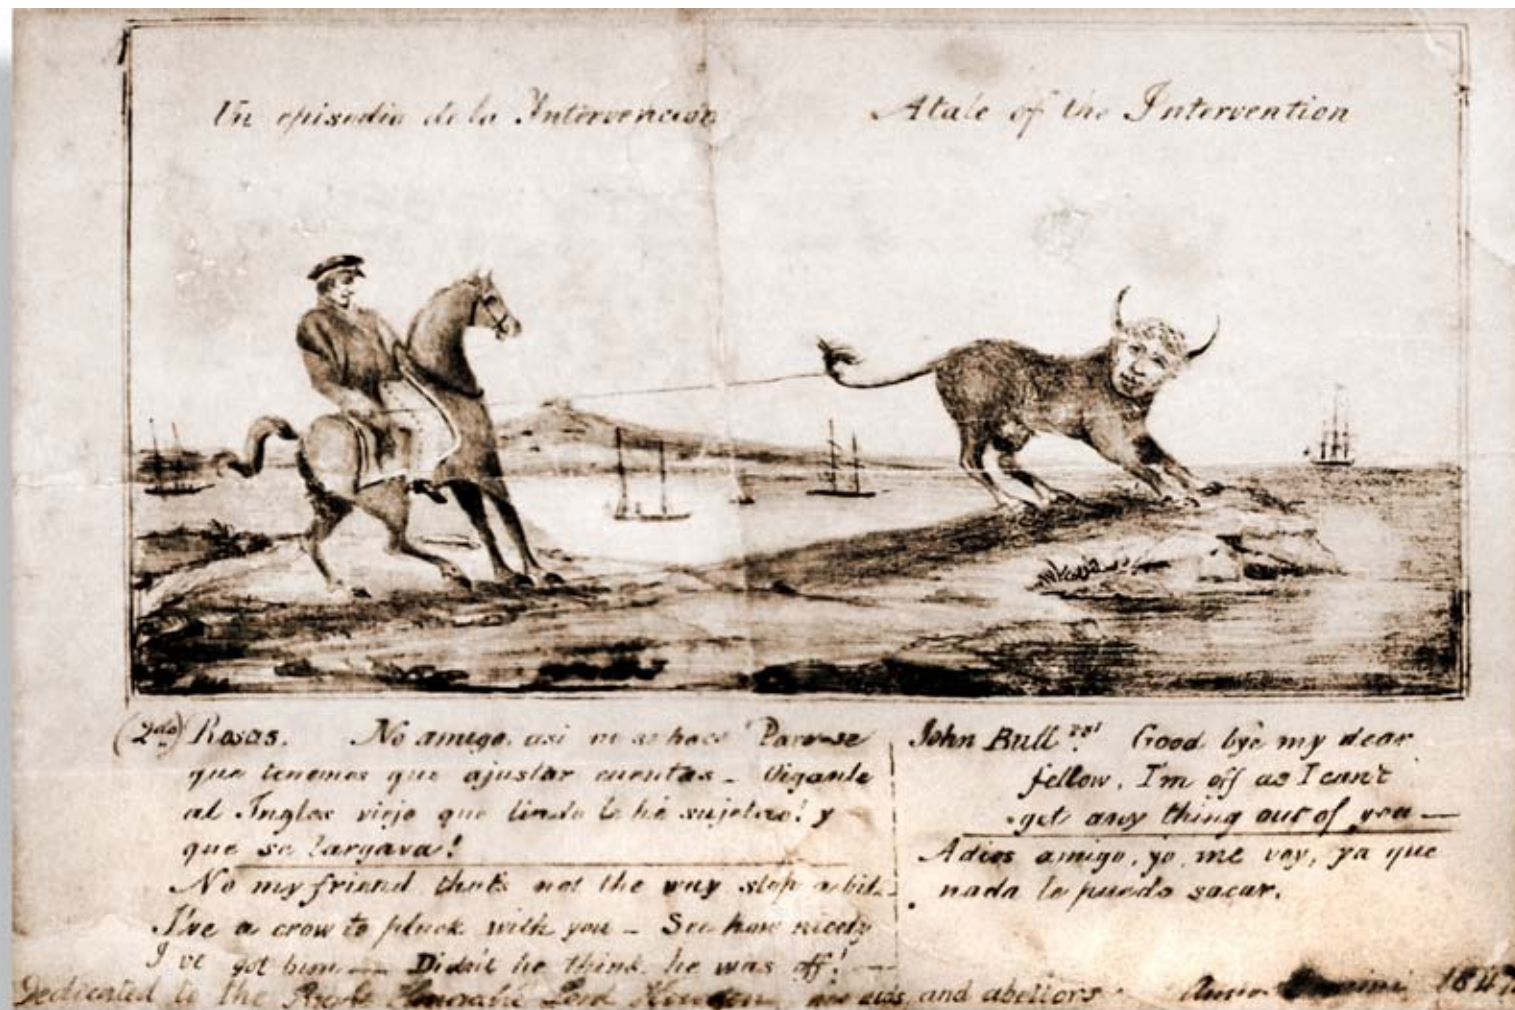 Un episodio de la Intervencion
A tale of the Intervention
(2do) Rosas. No amigo, asi no se hace Parese
que tenemos que ajustar cuentas - Viganle
al Ingles viejo que lindo le he sujetao! y
que se largava!
No my friend that's not the way stop a bit
I've a crow to pluck with you - See how nicely
I've got him — Didn't he think he was off! —
John Bull 1st Good bye my dear
fellow, I'm off as I can't
get any thing out of you —
Adios amigo, yo me voy, ya que
nada le puedo sacar.
Dedicated to the Right Honorable Lord Howden, aids, and abettors. Anno 184